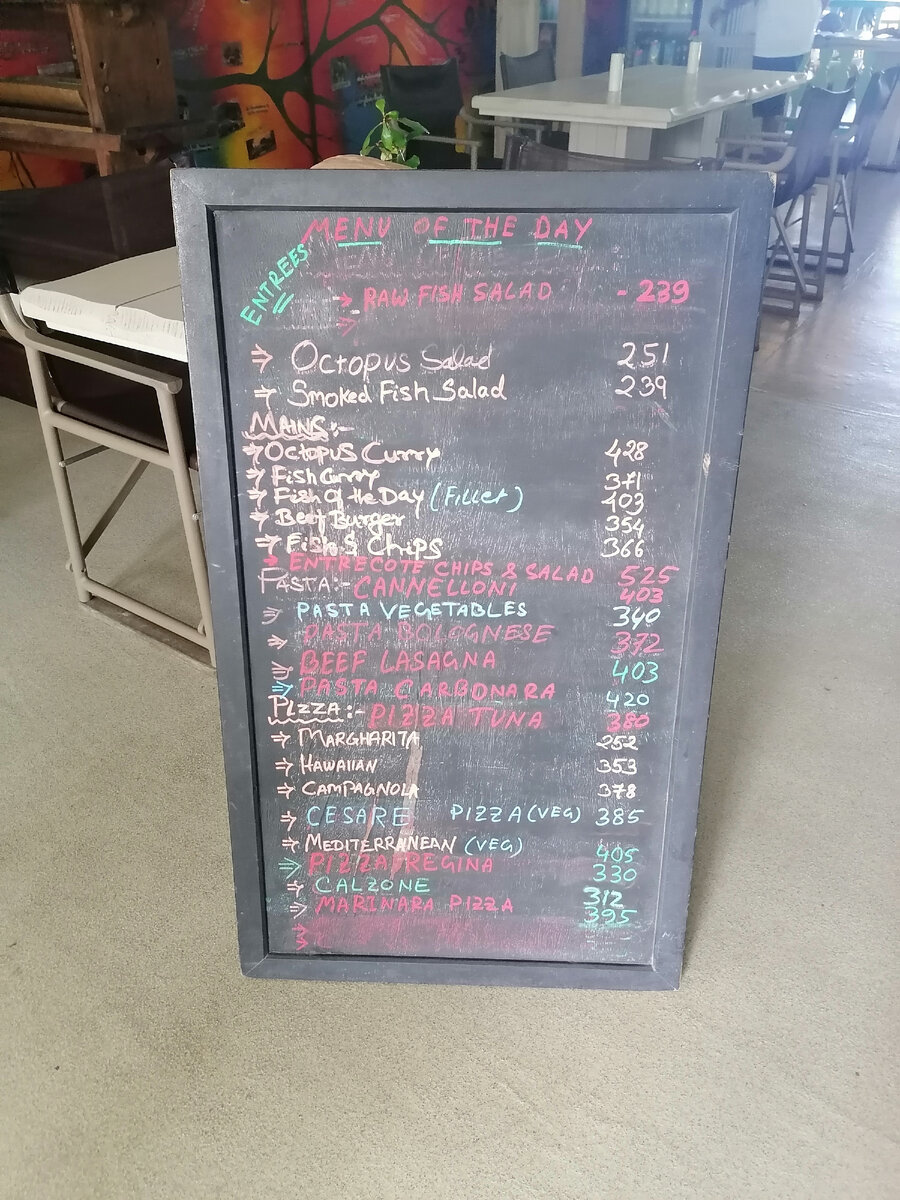 MENU OF THE DAY
ENTREES
⇒ RAW FISH SALAD - 239
⇒ Octopus Salad 251
⇒ Smoked Fish Salad 239
MAINS:-
⇒ Octopus Curry 428
⇒ Fish Curry 371
⇒ Fish of the Day (Fillet) 403
⇒ Beef Burger 354
⇒ Fish & Chips 366
→ ENTRECOTE CHIPS & SALAD 525
PASTA:- CANNELLONI 403
⇒ PASTA VEGETABLES 340
⇒ PASTA BOLOGNESE 372
⇒ BEEF LASAGNA 403
⇒ PASTA CARBONARA 420
PIZZA:- PIZZA TUNA 380
⇒ MARGHARITA 252
⇒ HAWAIIAN 353
⇒ CAMPAGNOLA 378
⇒ CESARE PIZZA (VEG) 385
⇒ MEDITERRANEAN (VEG) 405
⇒ PIZZA REGINA 330
⇒ CALZONE 312
⇒ MARINARA PIZZA 395